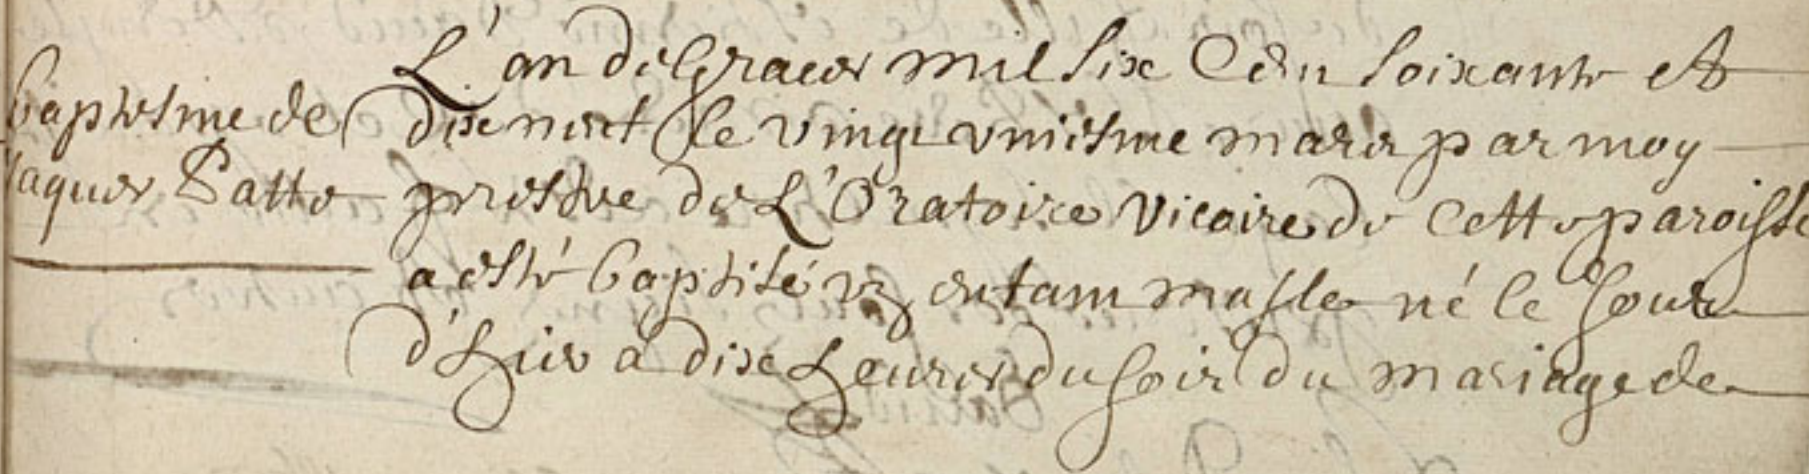 Baptesme de
Jaques Patte
L'an de Grace mil six Cens soixante et
dix neuf le vingt uniesme mars par moy
prestre de L'Oratoire vicaire de cette paroisse
a esté baptisé un enfant masle né le jour
d'hier a dix heures du soir du mariage de